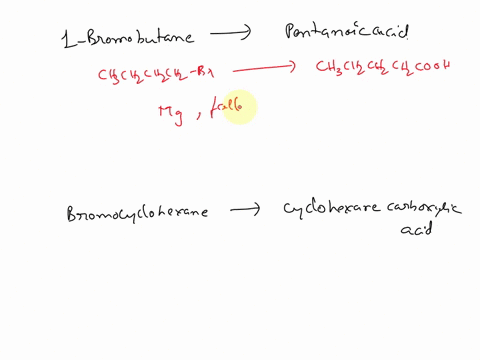 1-Bromobutane → Pentanoic acid
CH3CH2CH2CH2-Br → CH3CH2CH2CH2COOH
Mg, follo
Bromocyclohexane → cyclohexare carboxylic
acid